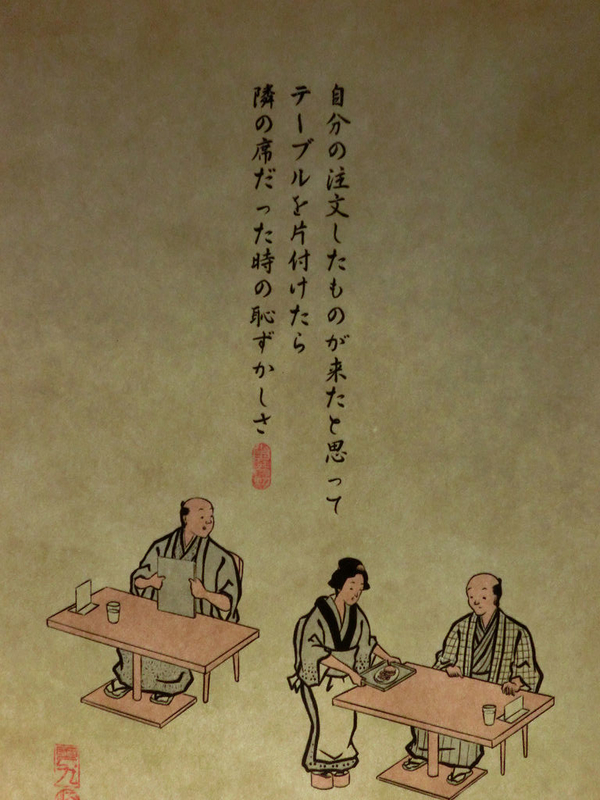 自分の注文したものが来たと思って
テーブルを片付けたら
隣の席だった時の恥ずかしさ